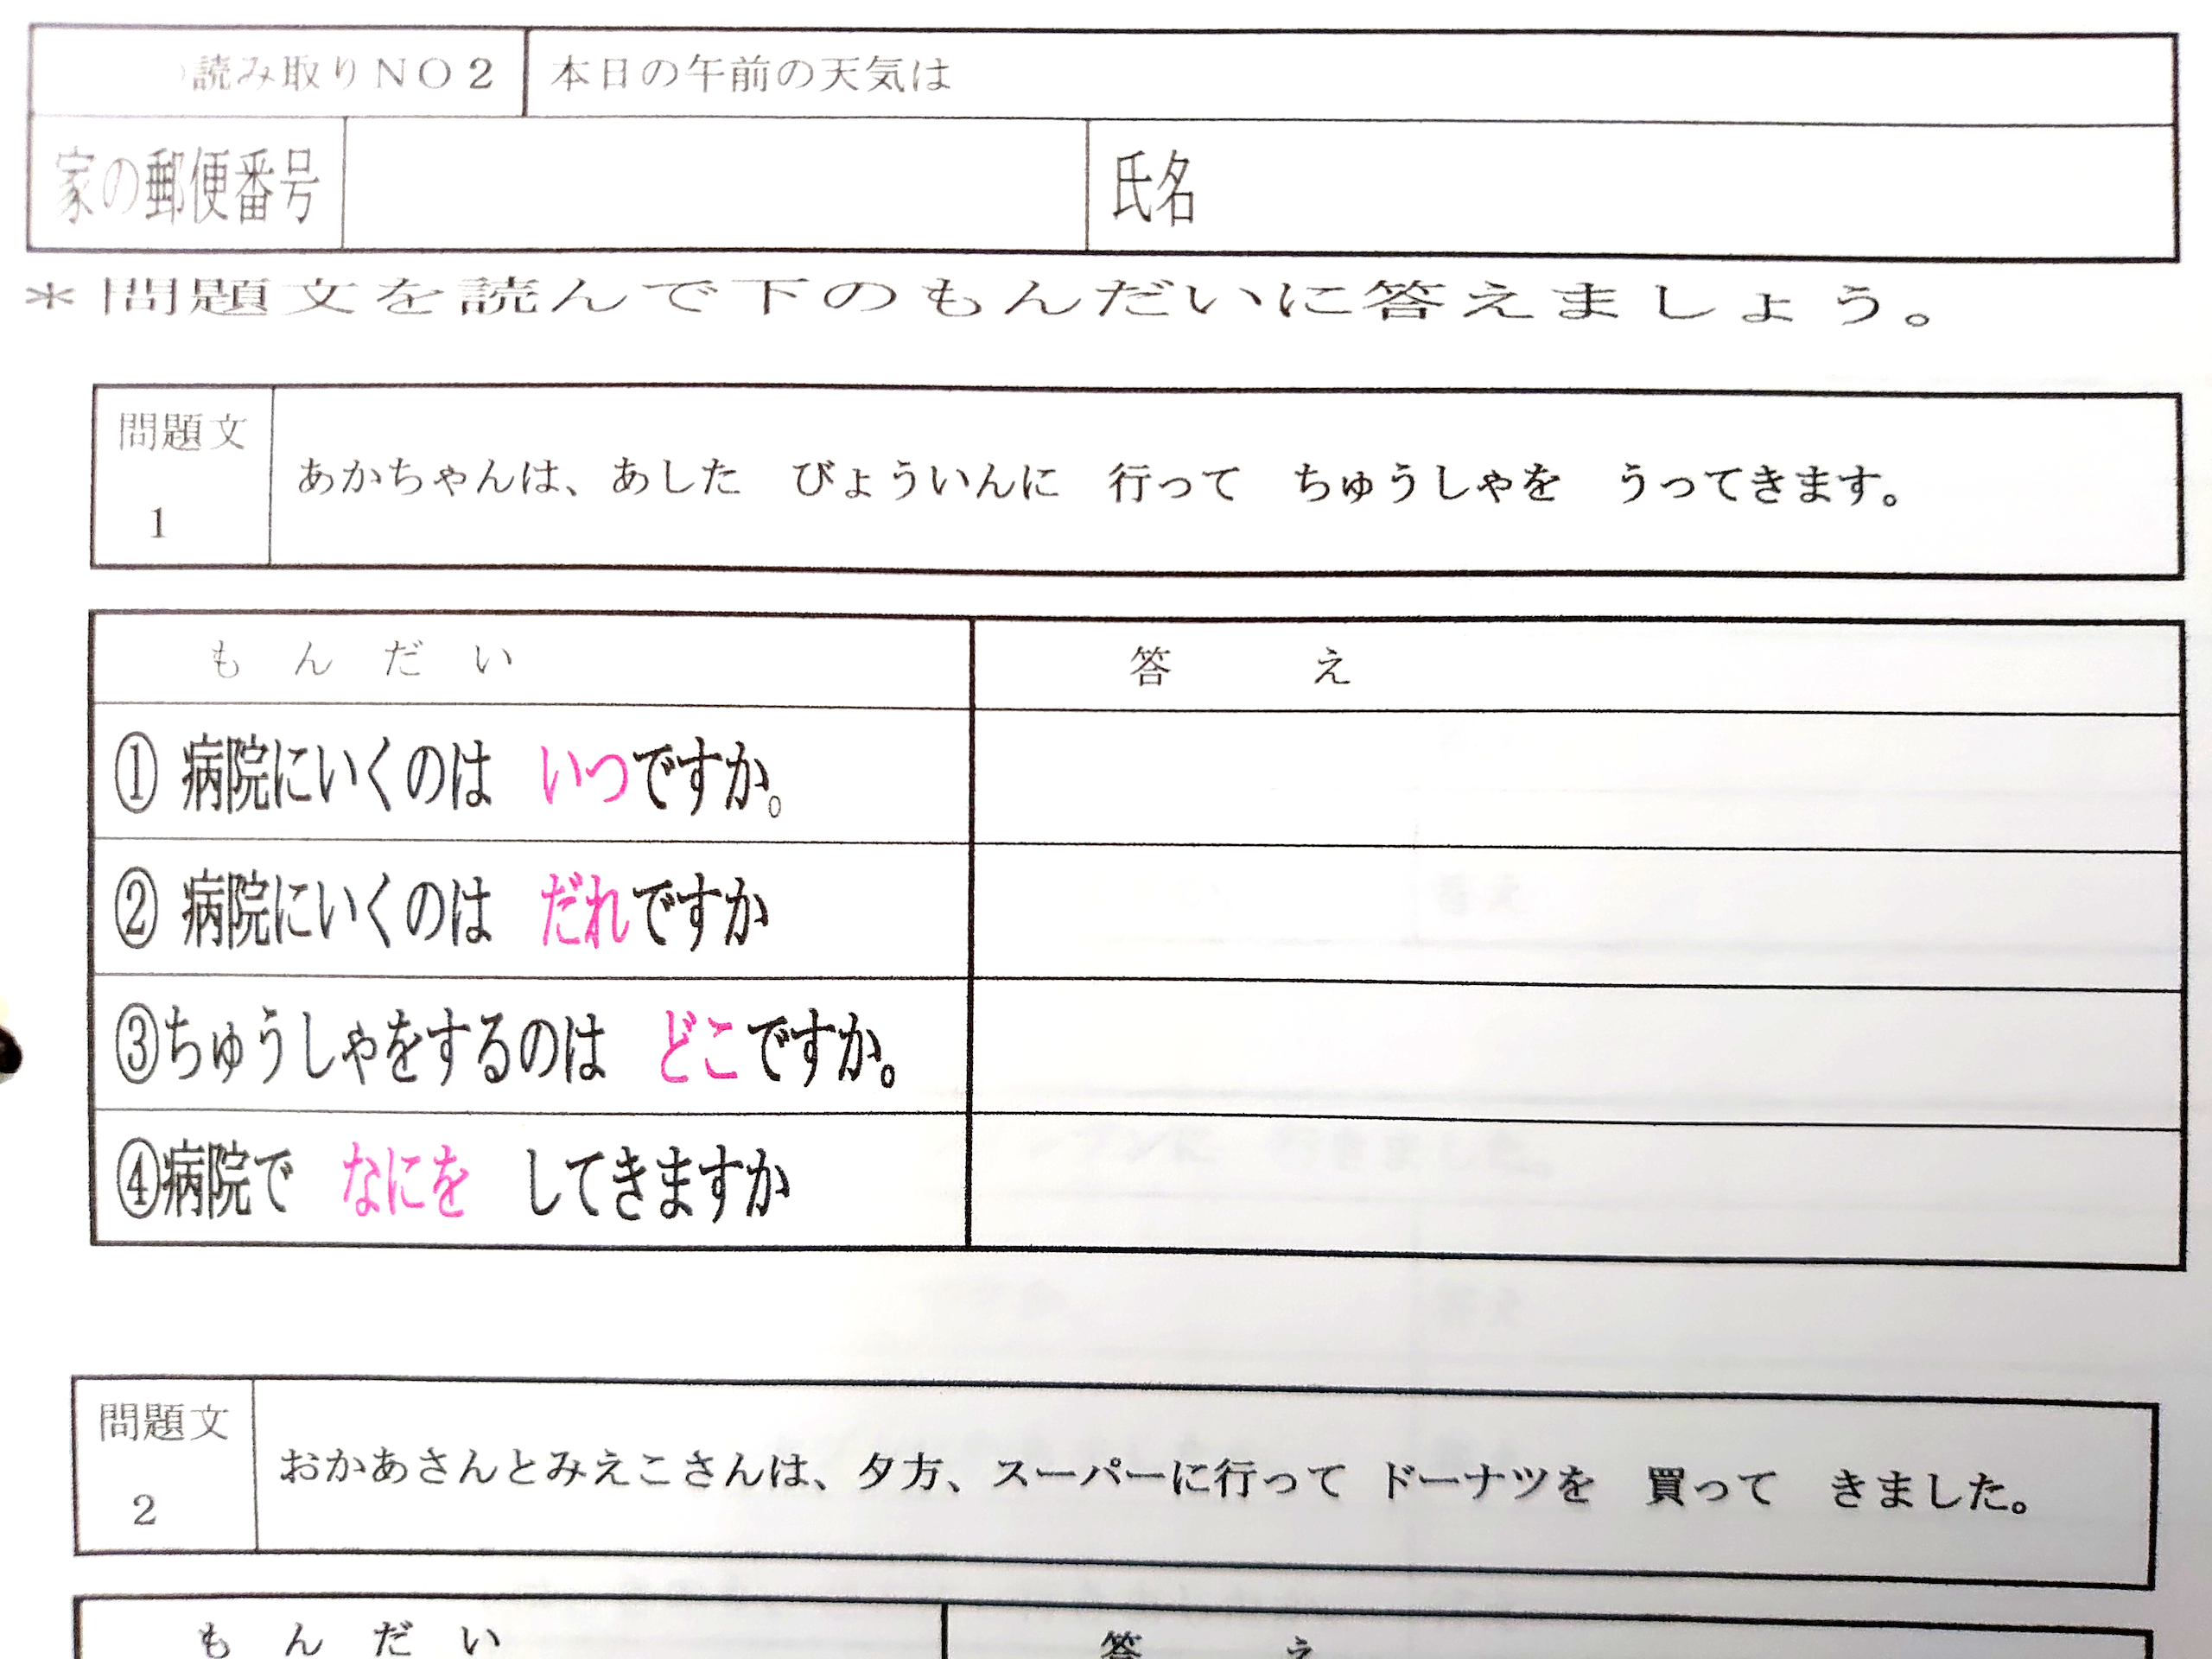 読み取りNO2 本日の午前の天気は
家の郵便番号 氏名
＊問題文を読んで下のもんだいに答えましょう。
問題文
1
あかちゃんは、あした　びょういんに　行って　ちゅうしゃを　うってきます。
もんだい 答え
① 病院にいくのは　いつですか。
② 病院にいくのは　だれですか
③ちゅうしゃをするのは　どこですか。
④病院で　なにを　してきますか
問題文
2
おかあさんとみえこさんは、夕方、スーパーに行って ドーナツを　買って　きました。
もんだい 答え